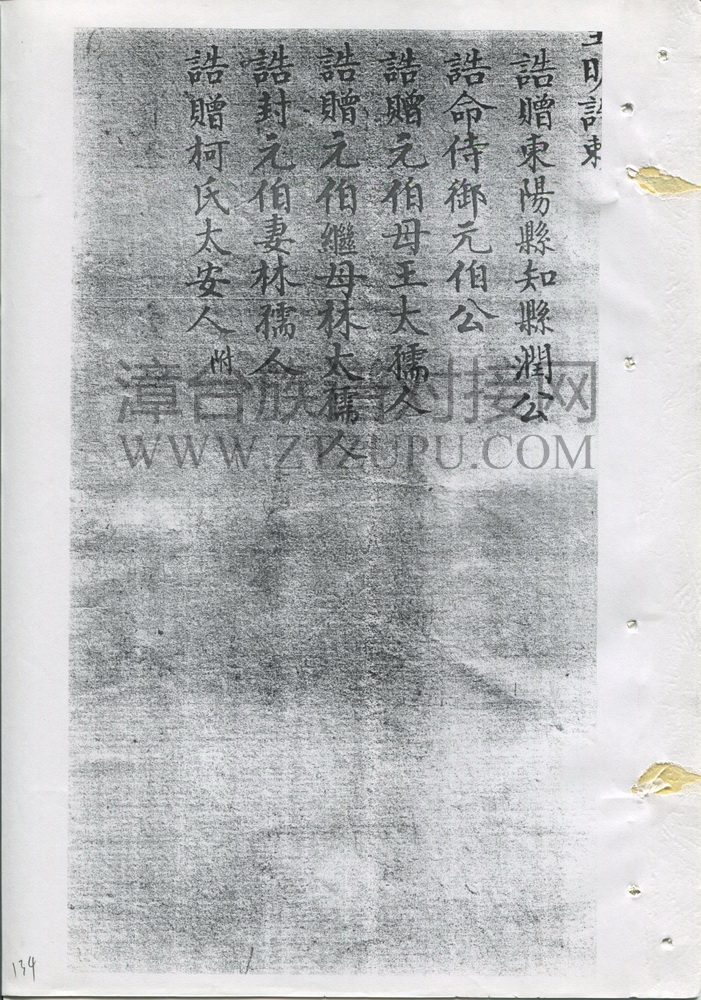 明誥
誥贈東陽縣知縣潤公
誥命侍御元伯公
誥贈元伯母王太孺人
誥贈元伯繼母林太孺人
誥封元伯妻林孺人
誥贈柯氏太安人 附
漳台族谱对接网
WWW.ZTZUPU.COM
134